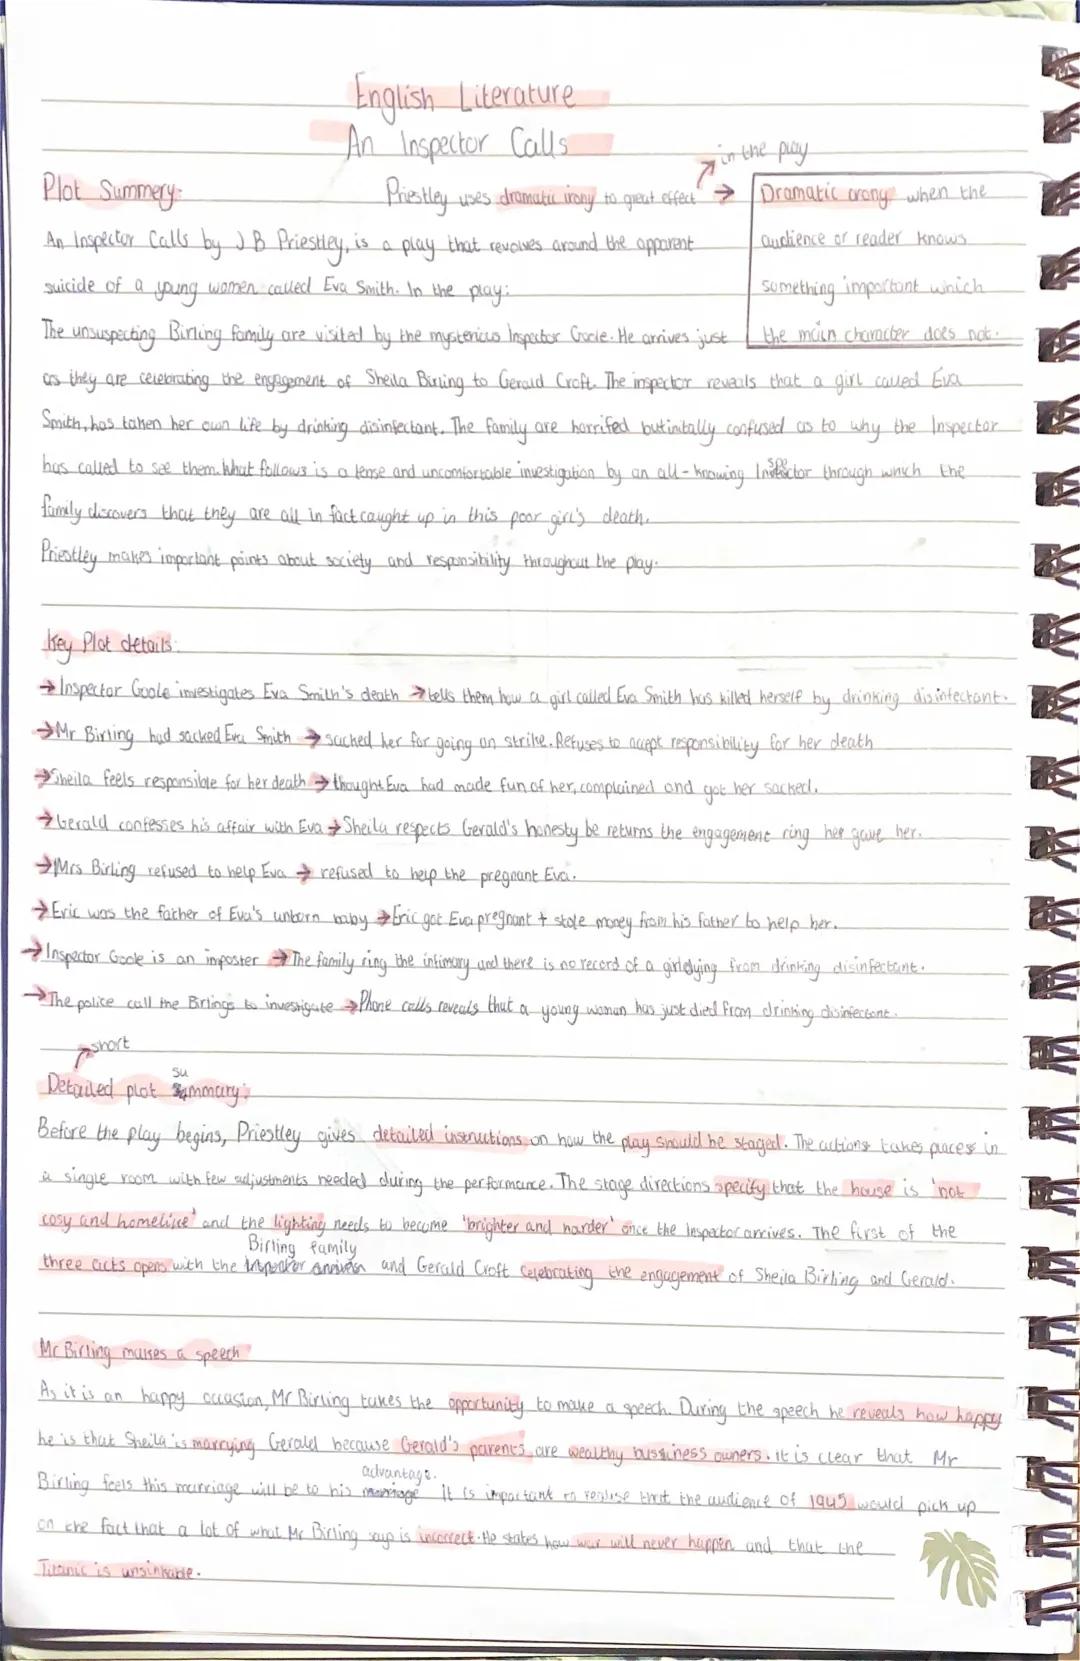 English Literature
An Inspector Calls
in the play
Plot Summery:
Priestley uses dramatic irony to great effect →
Dramatic irony when the
audience or reader knows
something important which
the main character does not.
An Inspector Calls by J B Priestley, is a play that revolves around the apparent
suicide of a young women called Eva Smith. In the play:
The unsuspecting Birling family are visited by the mysterious Inspector Goole. He arrives just
as they are celebrating the engagement of Sheila Birling to Gerald Croft. The inspector reveals that a girl called Eva
Smith, has taken her own life by drinking disinfectant. The family are horrifed but initally confused as to why the Inspector
has called to see them. What follows is a tense and uncomfortable investigation by an all-knowing Inspector through which the
family discovers that they are all in fact caught up in this poor girl's death.
Priestley makes important points about society and responsibility throughout the play.
Key Plot details:
→ Inspector Goole investigates Eva Smith's death → tells them how a girl called Eva Smith has killed herself by drinking disinfectant.
→ Mr Birling had sacked Eva Smith → sacked her for going on strike. Refuses to accept responsibility for her death
→ Sheila feels responsible for her death → thought Eva had made fun of her, complained and got her sacked.
→ Gerald confesses his affair with Eva → Sheila respects Gerald's honesty be returns the engagement ring he gave her.
→ Mrs Birling refused to help Eva → refused to help the pregnant Eva.
→ Eric was the father of Eva's unborn baby → Eric got Eva pregnant + stole money from his father to help her.
→ Inspector Goole is an imposter → The family ring the infimary and there is no record of a girl dying from drinking disinfectant.
→ The police call the Birlings to investigate → Phone calls reveals that a young woman has just died from drinking disinfectant.
short
Detailed plot summary:
Before the play begins, Priestley gives detailed instructions on how the play should be staged. The actions takes places in
a single room with few adjustments needed during the performance. The stage directions specify that the house is 'not
cosy and homelike' and the lighting needs to become 'brighter and harder' once the Inspector arrives. The first of the
three acts opens with the Birling family and Gerald Croft celebrating the engagement of Sheila Birling and Gerald.
Mr Birling makes a speech
As it is an happy occasion, Mr Birling takes the opportunity to make a speech. During the speech he reveals how happy
he is that Sheila is marrying Gerald because Gerald's parents are wealthy bussiness owners. It is clear that Mr
Birling feels this marriage will be to his advantage. It is important to realise that the audience of 1945 would pick up
on the fact that a lot of what Mr Birling says is incorrect. He states how war will never happen and that the
Titanic is unsinkable.